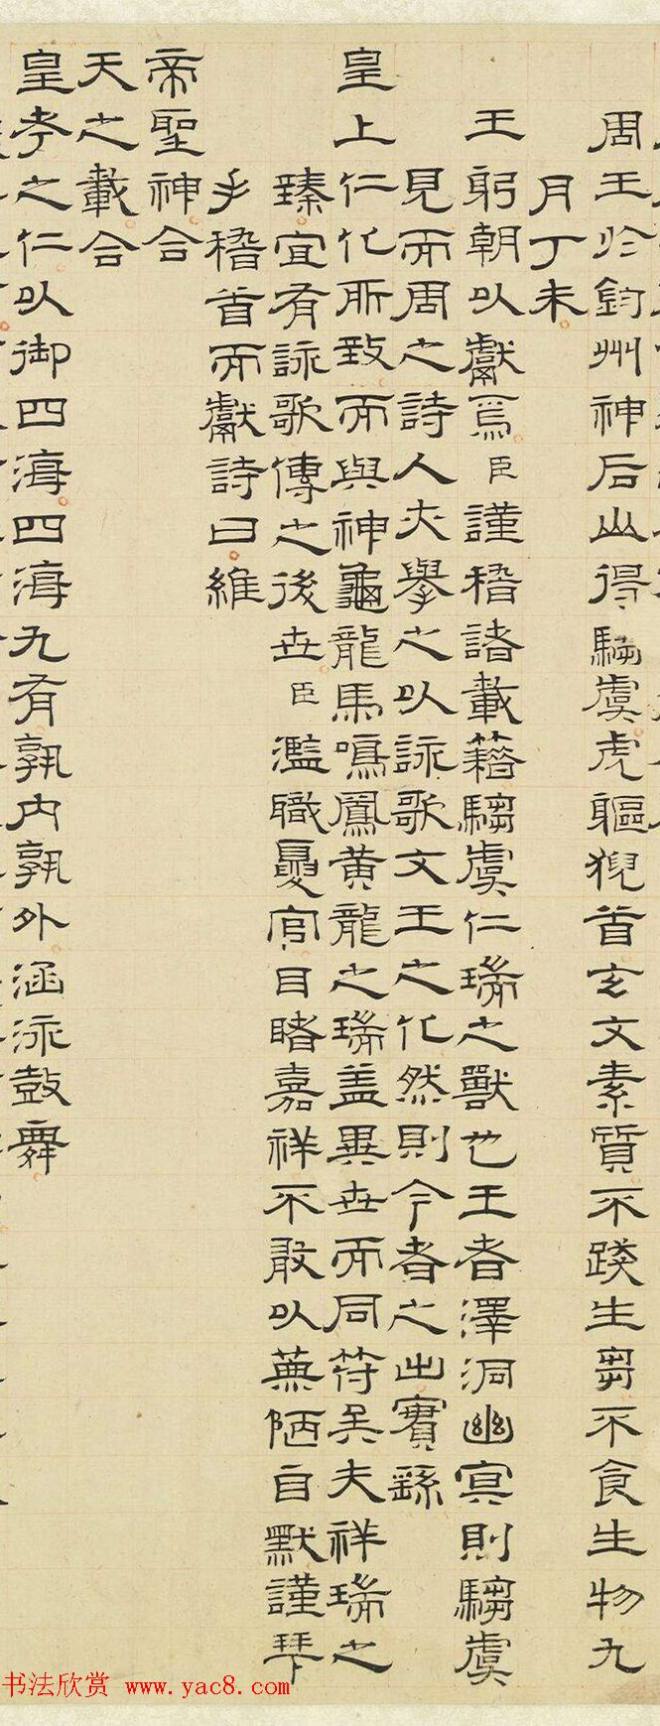 周王於鈞州神后山得騶虞虎軀猊首玄文素質不踐生芻不食生物九
月丁未
王躬朝以獻焉臣謹稽諸載籍騶虞仁瑞之獸也王者澤洞幽冥則騶虞
見而周之詩人夫舉之以詠歌文王之化然則今者之出實繇
皇上仁化所致而與神龜龍馬鳴鳳黃龍之瑞盖異世而同符矣夫祥瑞之
臻宜有詠歌傳之後世臣濫職冣官目睹嘉祥不敢以蕪陋自默謹拜
手稽首而獻詩曰維
帝聖神合
天之載合
皇孝之仁以御四海四海九有孰內孰外涵泳鼓舞
书法欣赏 www.yac8.com